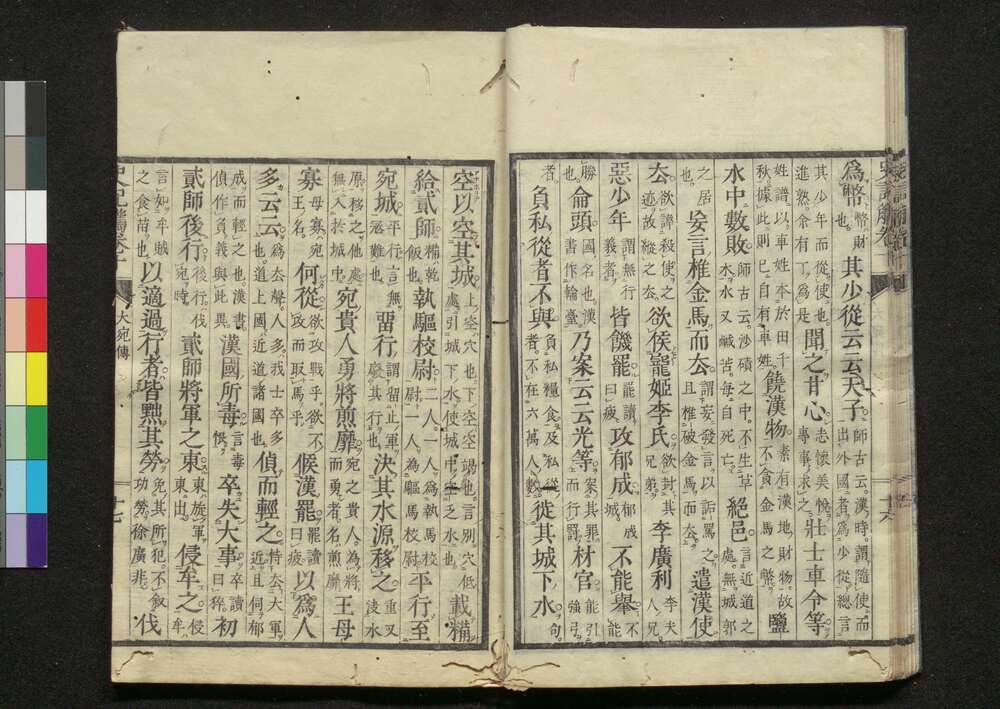 爲幣 幣財也 其少從云云天子 師古云漢時謂隨使而出外國者爲少從總言
其少年而從使也進熟余有丁爲是 聞之甘心 志懷美悅專事求之 壯士車令等
姓譜以車姓本於田千秋據此則已自有車姓 饒漢物 素有漢地財物故不貪金馬之幣 鹽
水中數敗 師古云沙磧之中不生草木水又鹹苦每自死亡 絕邑 言近道之處無城郭
之居也 妄言椎金馬而厺 謂妄發言以詬罵之且椎破金馬而厺 遣漢使
厺 欲諱殺使之迹故縱之厺 欲侯寵姬李氏 欲封其兄弟 李廣利 李夫人兄
惡少年 謂無行義者 皆饑罷 罷讀曰疲 攻郁成 郁成城 不能舉 不能
勝 侖頭 國名也漢書作輪臺 乃案云云光等 案其罪而行罰 材官 能引強弓
者 負私從者不與 負私糧食及私從者不在六萬人數 徙其城下水 句
空以空其城 上空穴也下空空竭也言別穴低處引城下水使城中乏水也 載糒
給貳師 糒乾飯也 執驅校尉二人 一人爲執馬校尉一人爲驅馬校尉 平行至
宛城 平行言無惡難也 畱行 謂留止軍廢其行也 決其水源移之 重又淩水
原移之他處無入於城中 宛貴人勇將煎靡 宛之貴人爲將而勇者名煎靡 王母
寡 母寡宛王名 何從 欲攻戰乎欲不攻而取馬乎 候漢罷 罷讀曰疲 以爲人
多云云 爲厺聲人多我士卒多也道上國近道諸國也 偵而輕之 恃厺大軍近且伺郁
成而輕之也漢書偵作負義與此異 漢國所毒 言毒恨 卒失大事 卒讀曰猝 初
貳師後行 後行伐宛時 貳師將軍之東 東旋軍東出 侵牟之 侵牟
言如牟賊之食苗也 以適過行者皆黜其勞 免其所犯不敘功勞徐廣非 伐
大宛傳
十七